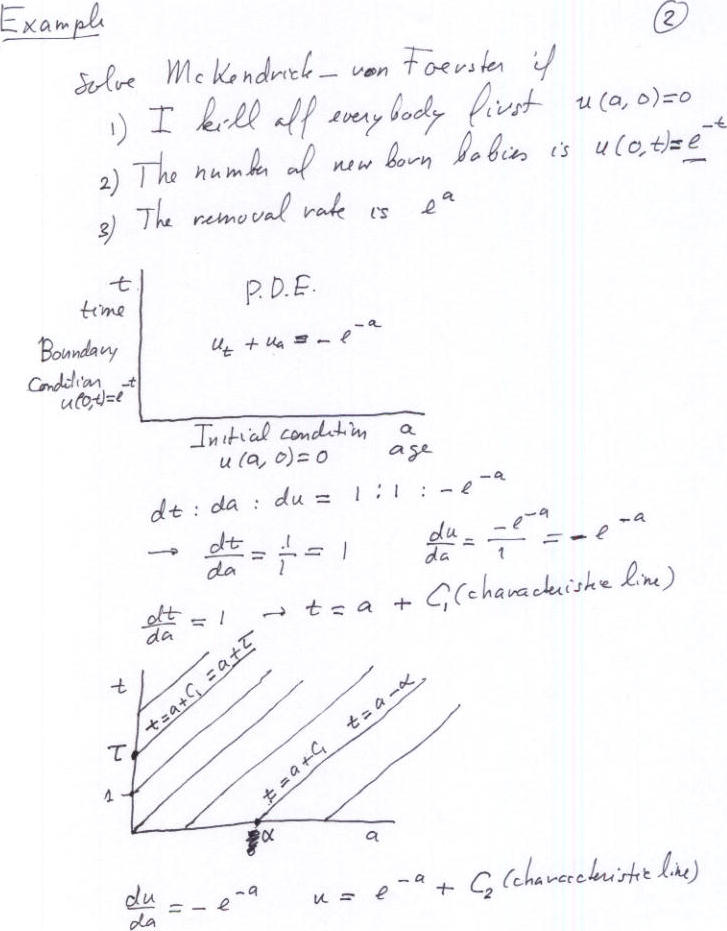 Example
②
Solve McKendrick - von Foerster if
1) I kill all everybody first u(a, 0)=0
2) The number of new born babies is u(0,t)=e^-t
3) The removal rate is e^a
t
time
P.D.E.
Boundary
Condition
u(0,t)=e^-t
u_t + u_a = - e^-a
Initial condition a
u(a, 0)=0 age
dt : da : du = 1 : 1 : -e^-a
→ dt/da = 1/1 = 1 du/da = -e^-a/1 = - e^-a
dt/da = 1 → t = a + C_1 (characteristic line)
t
t=a+C_1 = a+τ
t=a+C_1 t=a-α
τ
1
α a
du/da = - e^-a u = e^-a + C_2 (characteristic line)